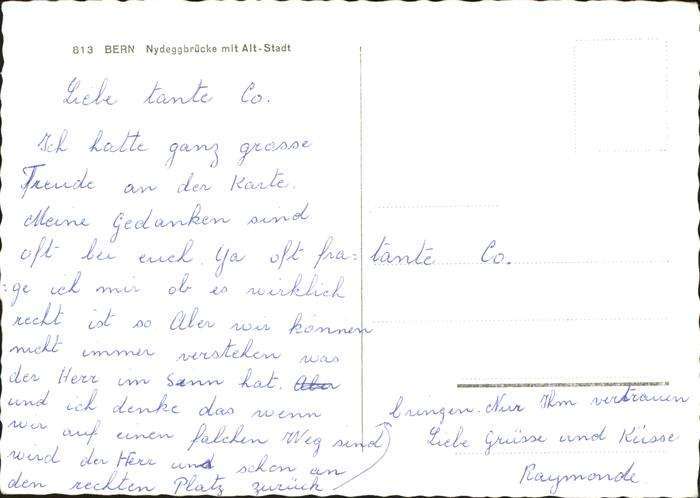 813 BERN Nydeggbrücke mit Alt-Stadt
Liebe tante Co.
Ich hatte ganz grosse
Freude an der Karte.
Meine Gedanken sind
oft bei euch. Ya oft fra=
:ge ich mir ob es wirklich
recht ist so Aber wir können
nicht immer verstehen was
der Herr im Senn hat. Aber
und ich denke das wenn
wir auf einen falchen Weg sind
wird der Herr und schon an
den rechten Platz zurück
bringen. Nur Ihm vertrauen
Liebe Grüsse und Küsse
Raymonde.
tante Co.